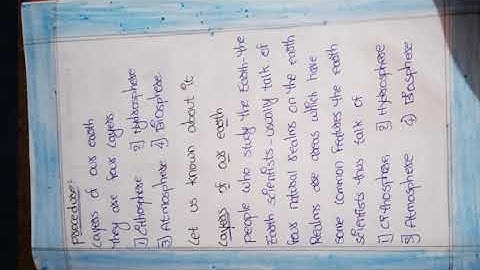 Procedure:
Layers of our earth
they are four layers
1) Lithosphere 2) Hydrosphere
3) Atmosphere 4) Biosphere
Let us known about it
Layers of our earth
people who study the Earth-the
Earth scientists - usually talk of
four natural realms on the earth
Realms are areas which have
some common features the earth
scientists thus talk of
1) Lithosphere 2) Hydrosphere
3) Atmosphere 4) Biosphere